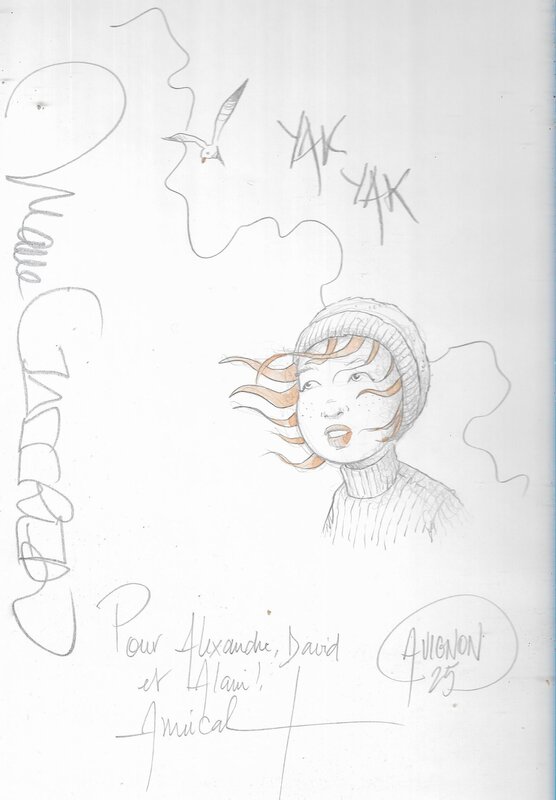 YAK
YAK
Pour Alexandre, David
et Alain !
Amical
AVIGNON
25